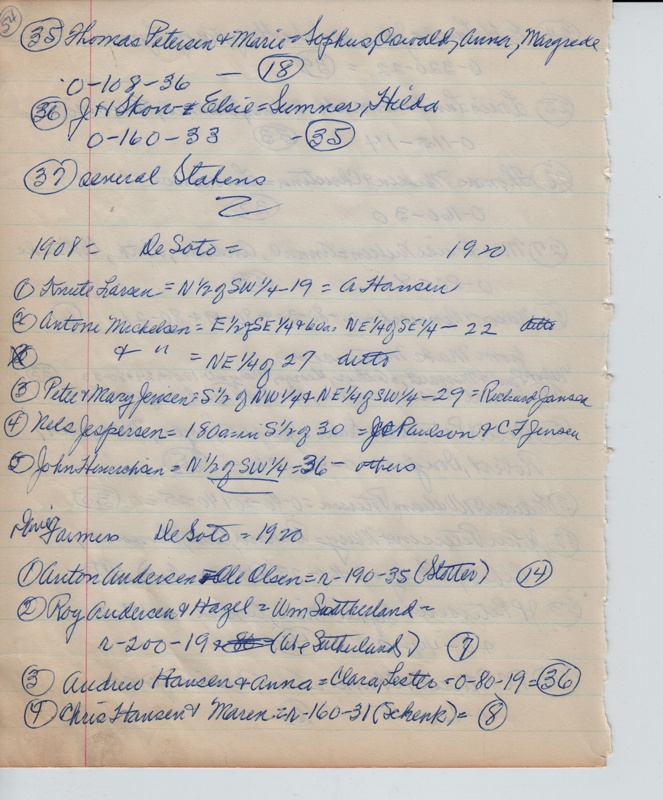 54
(35) Thomas Petersen & Marie = Sophus, Oswald, Anna, Margrede
0-108-36 — (18)
(36) J H Skow & Elsie = Sumner, Hilda
0-160-33 - (35)
(37) several Stakens
1908 = DeSoto = 1920
(1) Knute Larsen = N 1/2 of SW 1/4 - 19 = A Hansen
(2) Antone Michelsen = E 1/2 of SE 1/4 & 60a. NE 1/4 of SE 1/4 - 22 ditto
& " = NE 1/4 of 27 ditto
(3) Peter & Mary Jensen = S 1/2 of NW 1/4 & NE 1/4 of SW 1/4 - 29 = Richard Jansen
(4) Nels Jespersen = 180a = in S 1/2 of 30 = JC Paulson & C F Jensen
(5) John Hinrichsen = N 1/2 of SW 1/4 = 36 - others
Farmers DeSoto = 1920
(1) Anton Andersen Ole Olsen = r-190-35 (Stotter) (14)
(2) Roy Andersen & Hazel = Wm Sutherland =
r-200-19 (Sutherland) (7)
(3) Andrew Hansen & Anna = Clara, Lester = 0-80-19 = (36)
(4) Chris Hansen & Maren = r-160-31 (Schenk) = (8)